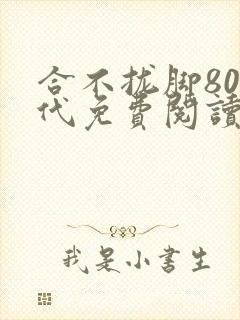 合不拢脚80
代免費閱讀
我是小書生